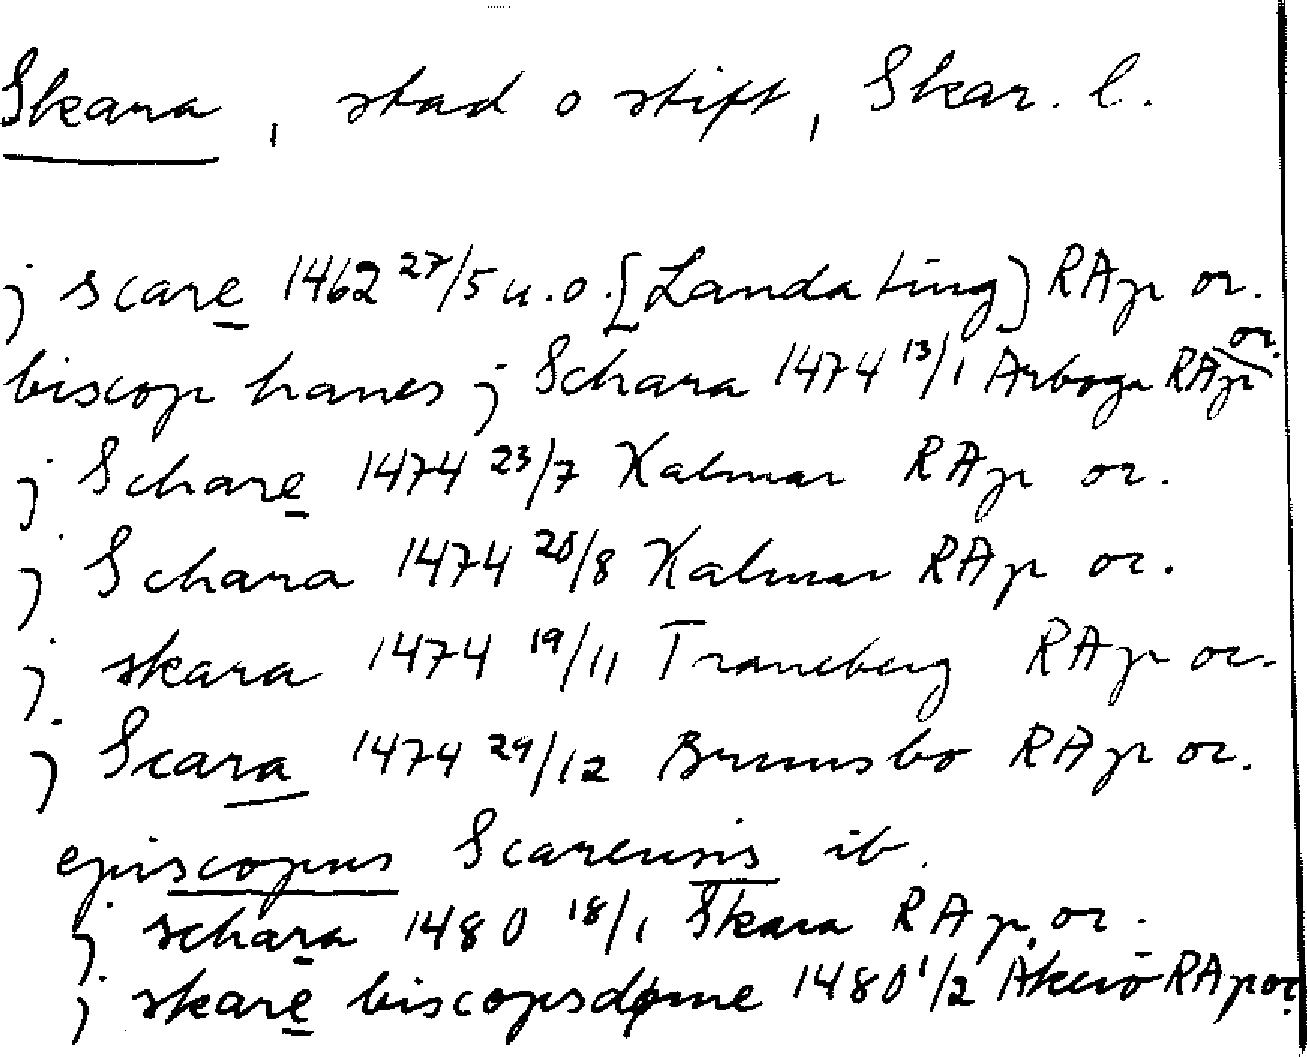 Skara, stad o stift, Skar. l.
j scare 1462 27/5 u.o. [Landa ting] RAp or.
biscop hanes j Schara 1474 13/1 Arboga RAp or.
j Schare 1474 23/7 Kalmar RAp or.
j Schara 1474 20/8 Kalmar RAp or.
j skara 1474 19/11 Traneberg RAp or.
j Scara 1474 29/12 Brunsbo RAp or.
episcopus Scarensis ib.
j schara 1480 18/1 Skara RAp or.
j skare biscopsdøme 1480 1/2 Åkerö RAp or.